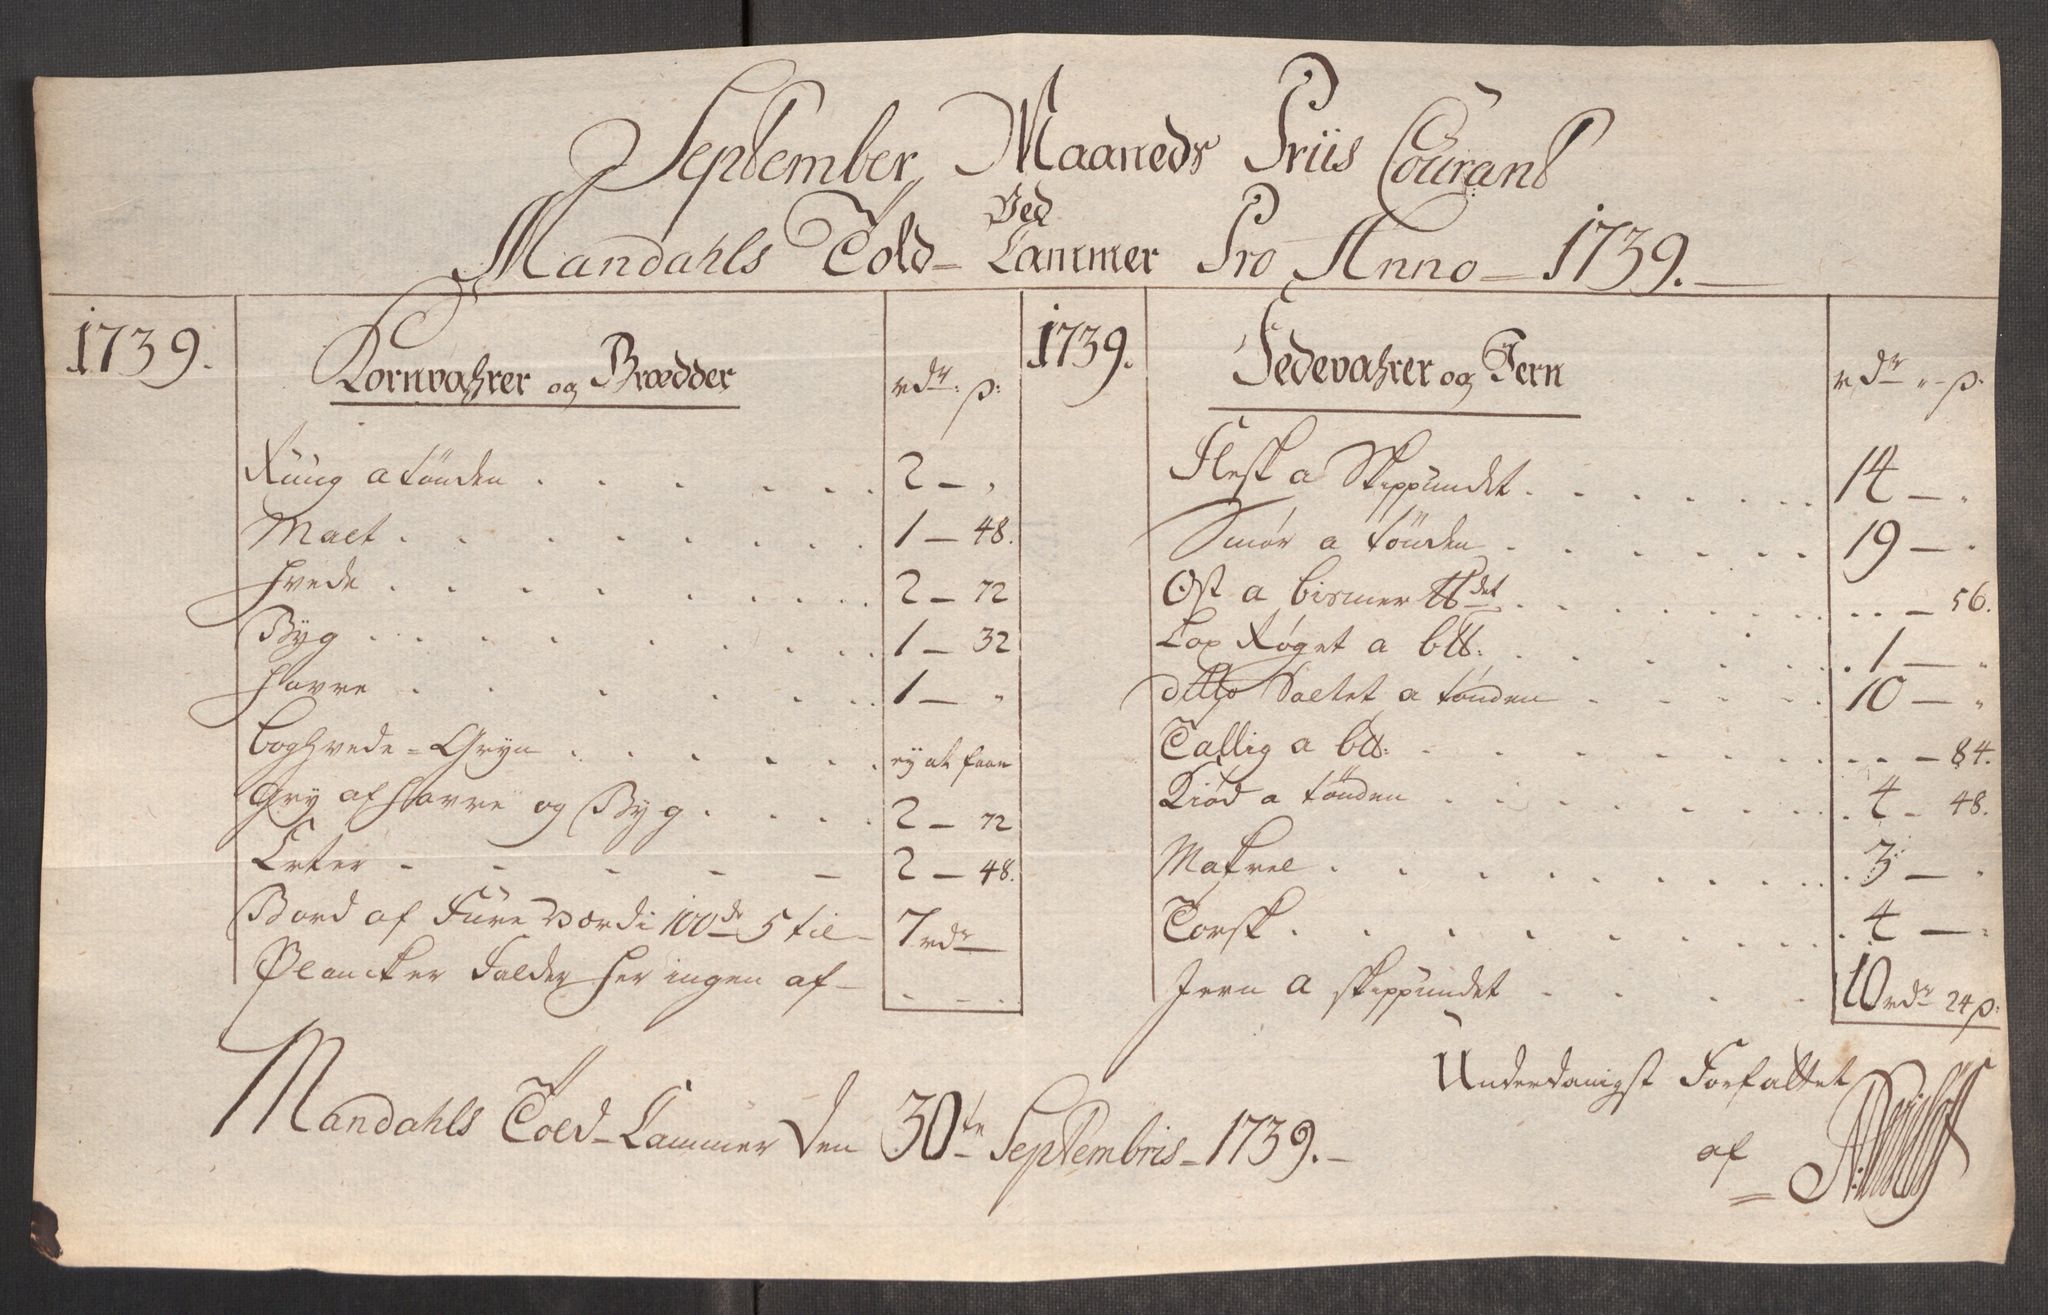 September Maaneds Priis Courant
Ved
Mandahls Told-Cammer Pro Anno-1739.
1739.
Kornvahrer og Brædder
rdr. ß:
Rüüg a tönden 2 - "
Malt 1 - 48.
Hvede 2 - 72
Bÿg 1 - 32
Havre 1 - "
Boghvede-Grÿn eÿ at faae
Grÿ af Havre og Bÿg 2 - 72
Erter 2 - 48.
Bord af Füre Værdi 100de 5 til 7 rdr
Plancker Falder her ingen af
1739.
Fedevahrer og Jern
rdr " - ß.
Flesk a Skippundet 14 - "
Smör a tönden 19 - "
Ost a bismer ℔det - 56.
Lax Røget a b℔: 1 - "
ditto Saltet a tönden 10 - "
Tallig a b℔: - 84.
Kiöd a tönden 4 - 48.
Makrel 3 - "
Torsk 4 - "
Jern a skippundet 10 rdr 24 ß:
Underdanigst Forfattet
Mandahls Told-Cammer den 30te Septembris-1739.
af